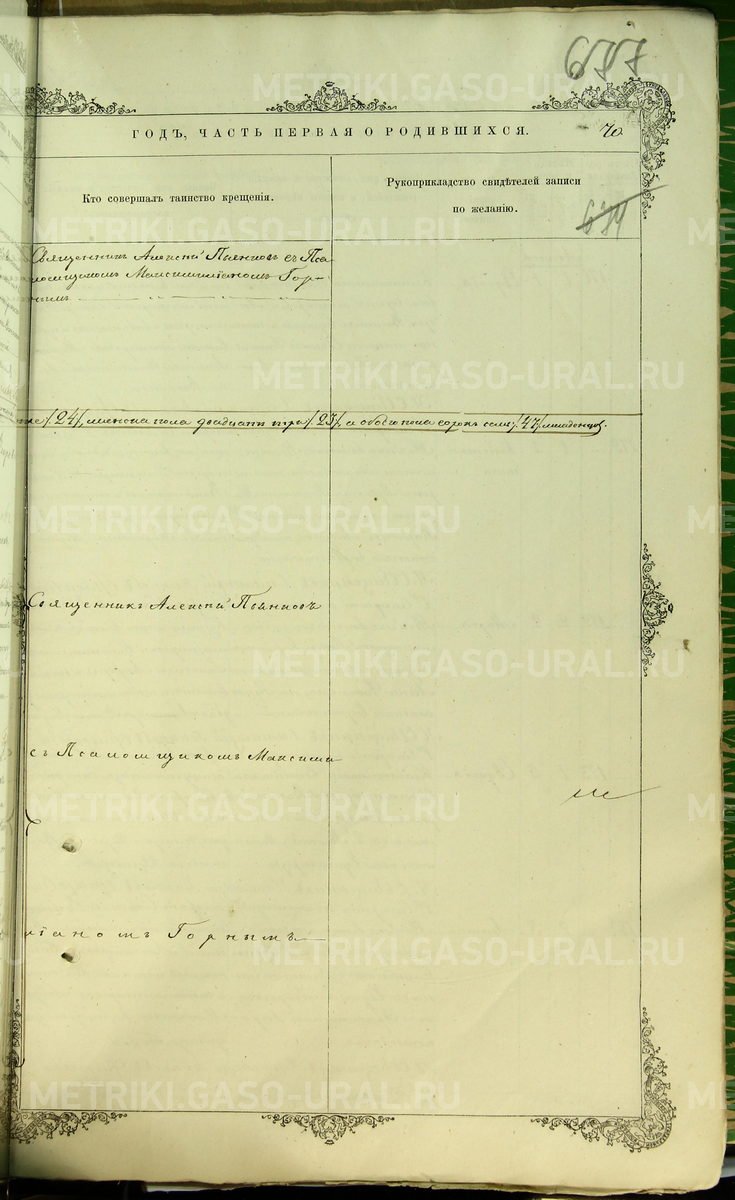 677
ГОДЪ, ЧАСТЬ ПЕРВАЯ О РОДИВШИХСЯ.
70
Кто совершалъ таинство крещенія.
Рукоприкладство свидѣтелей записи
по желанію.
Священникъ Алексій Поянковъ съ Пса-
ломщикомъ Максимиліаномъ Гор-
нымъ
/24/, женска пола двадцать три /23/, а обоего пола сорокъ семь /47/ младенцовъ.
Священникъ Алексій Поянковъ
съ Псаломщикомъ Максими
ліаномъ Горнымъ
METRIKI.GASO-URAL.RU